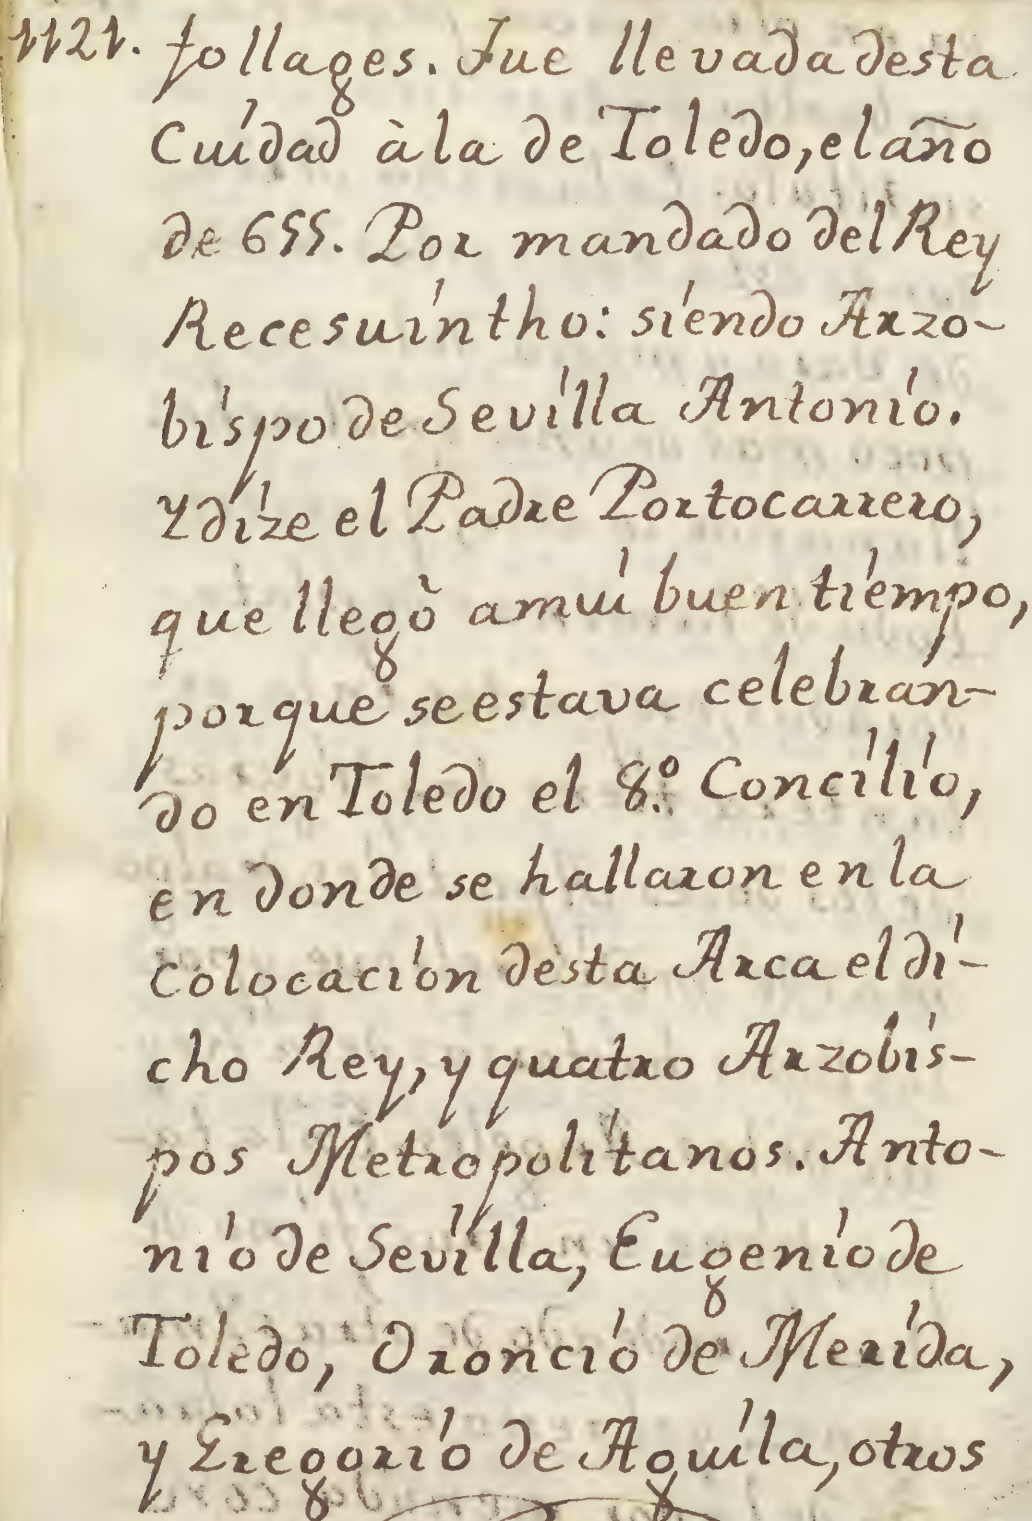 1121. follages. Fue llevada desta
Cuidad à la de Toledo, el año
de 655. Por mandado del Rey
Recesuintho: siendo Arzo-
bispo de Sevilla Antonio.
Y dize el Padre Portocarrero,
que llegò a mui buen tiempo,
porque se estava celebran-
do en Toledo el 8.º Concilio,
en donde se hallaron en la
Colocacion desta Arca el di-
cho Rey, y quatro Arzobis-
pos Metropolitanos. Anto-
nio de Sevilla, Eugenio de
Toledo, Oroncio de Merida,
y Gregorio de Aguila, otros